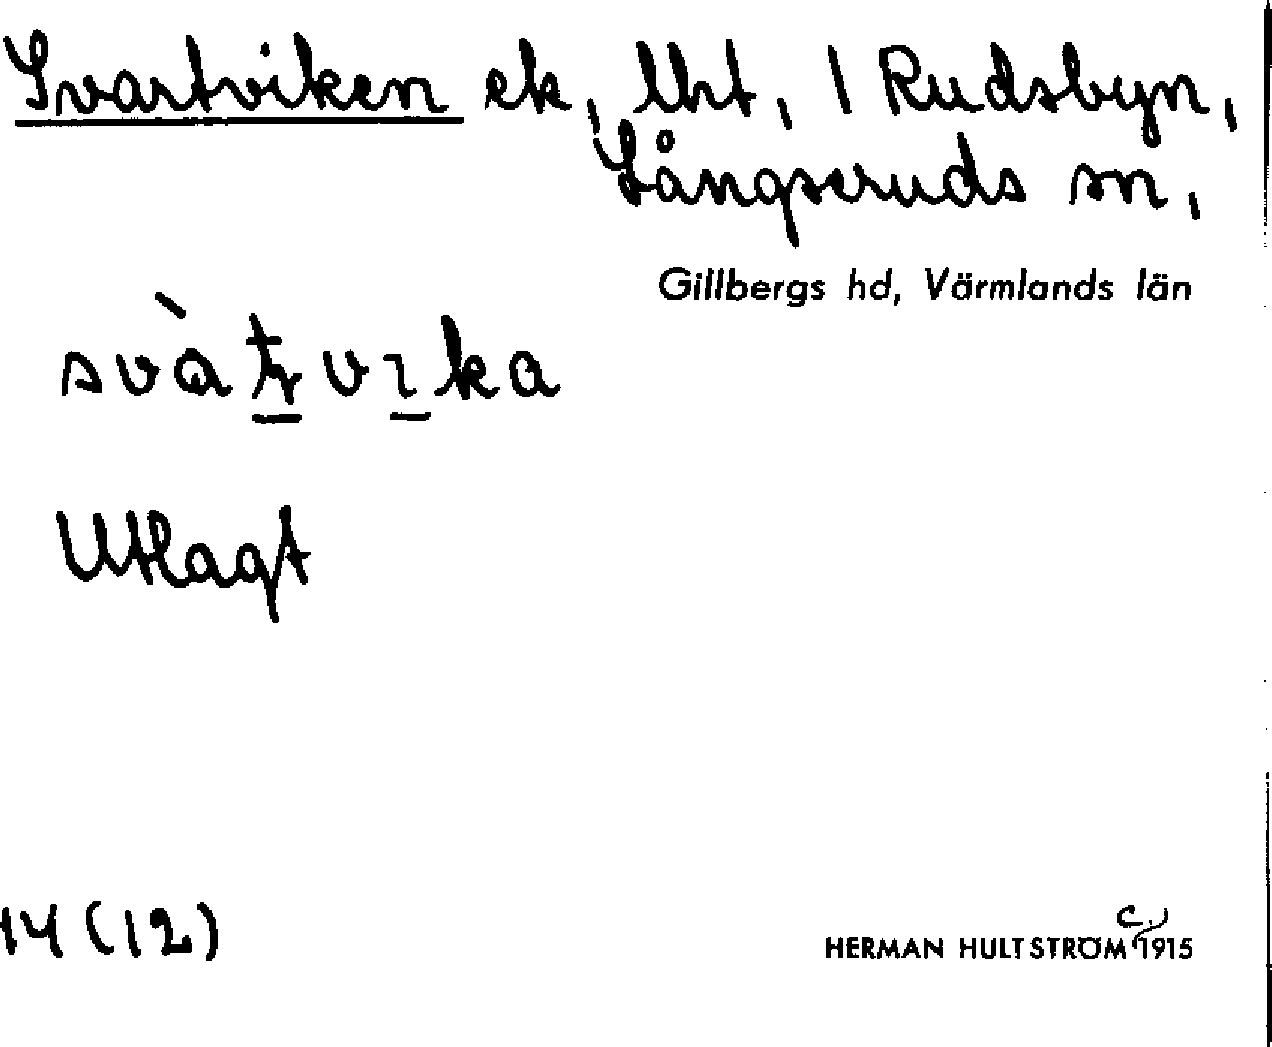 Svartviken ek, lht, 1 Rudsbyn,
Långseruds sn,
Gillbergs hd, Värmlands län
Utlagt
14 (12)
c.
HERMAN HULTSTRÖM 1915